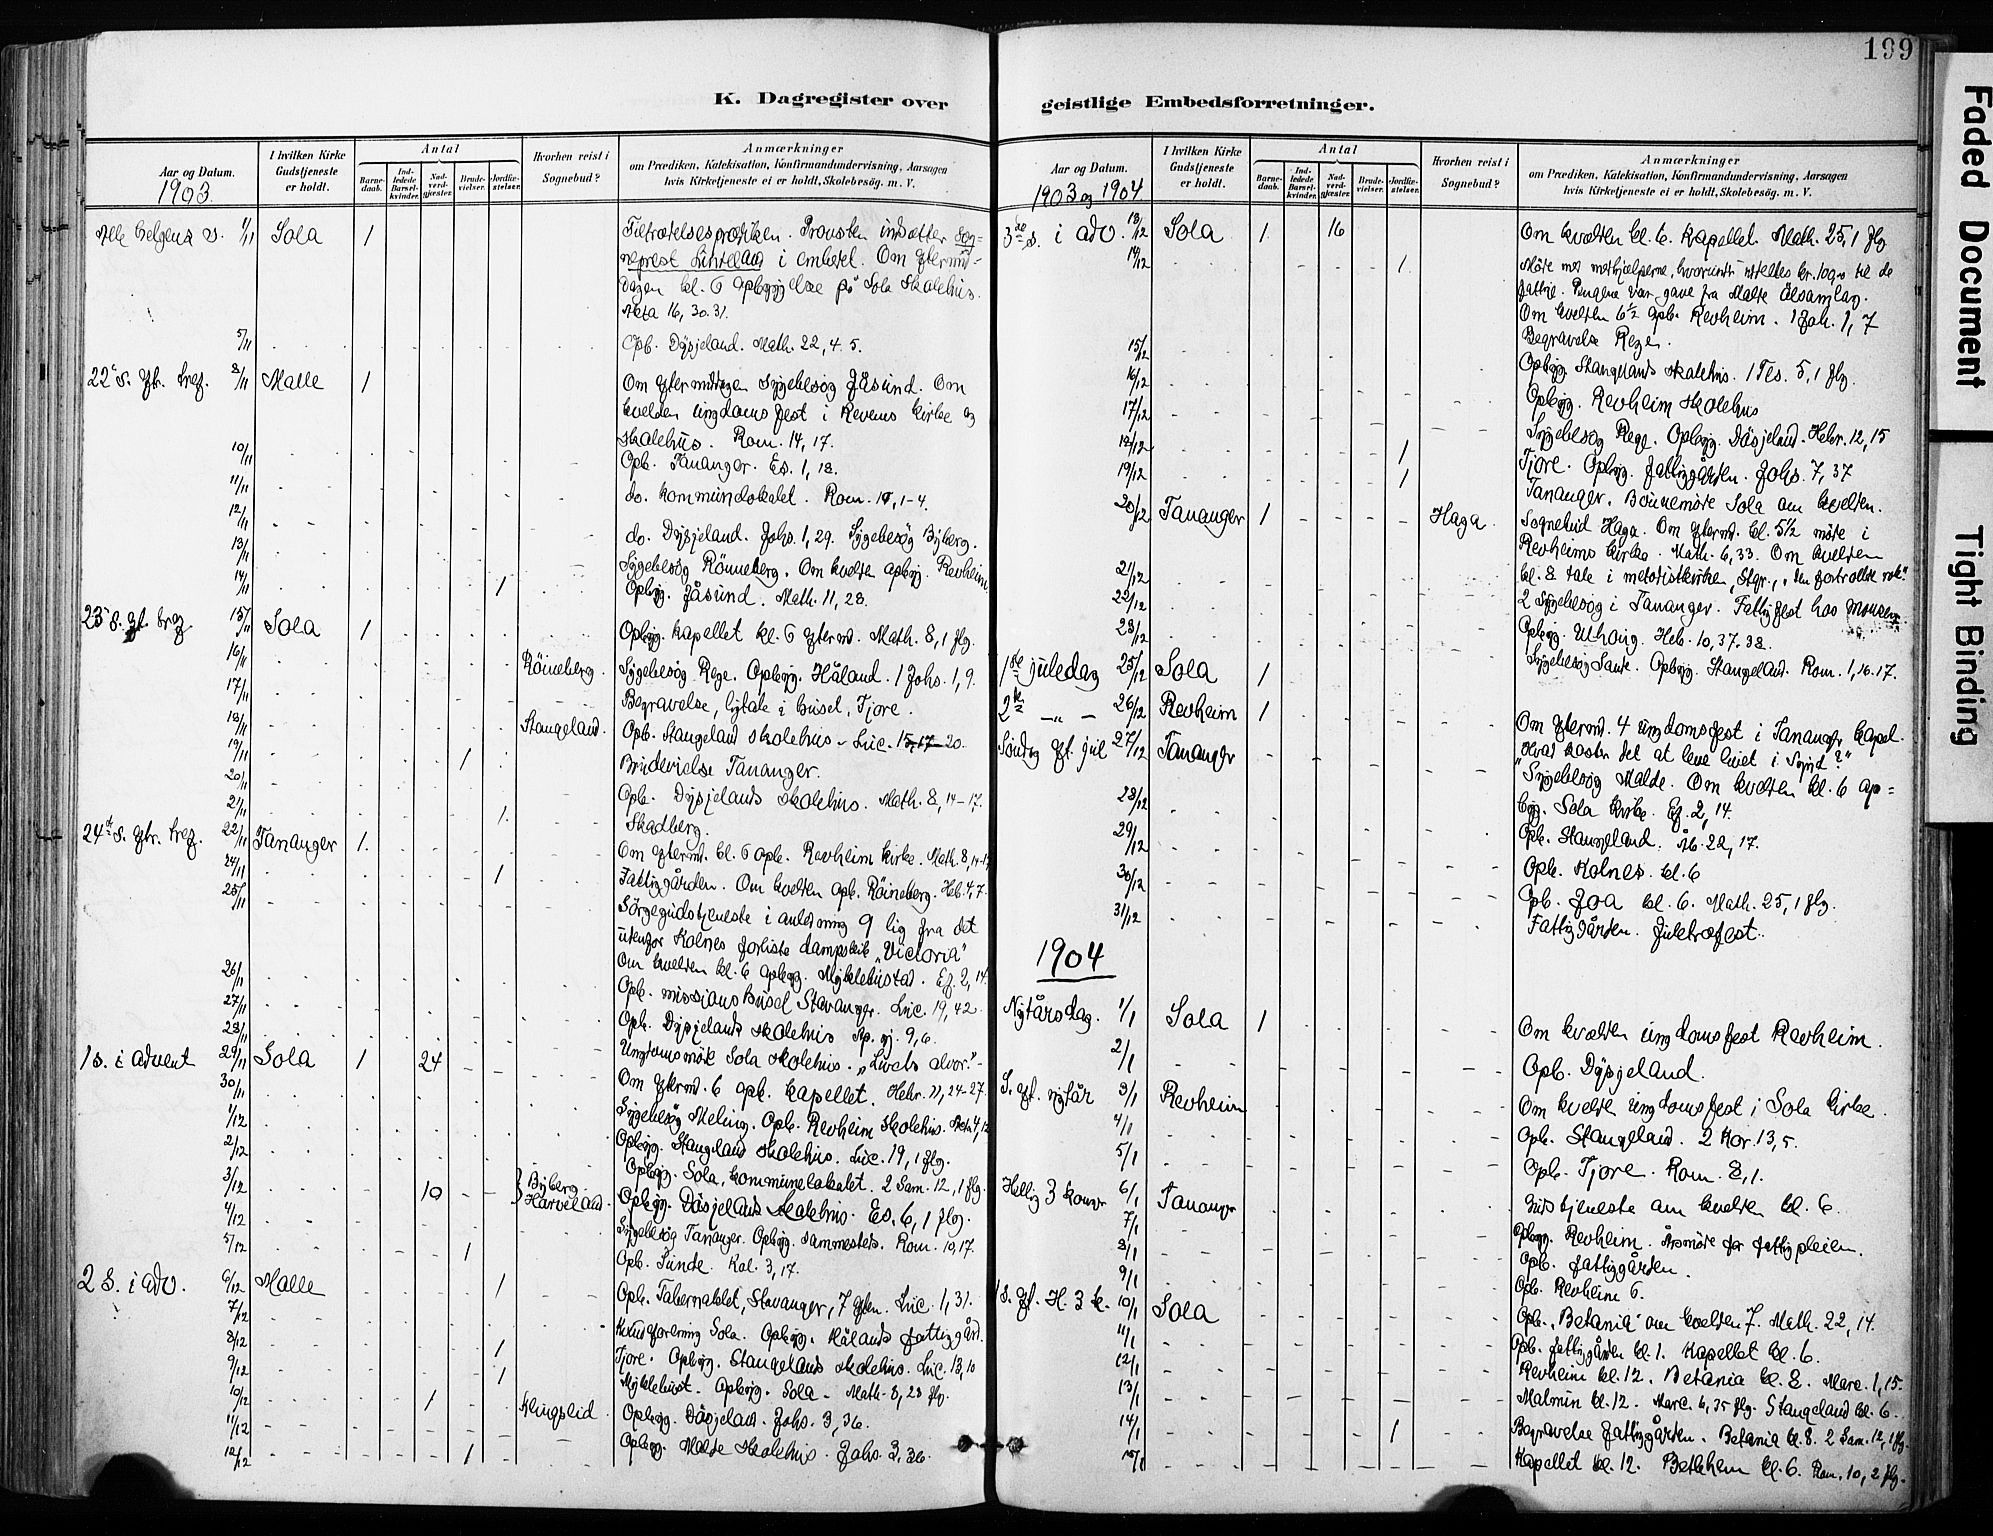 199
K. Dagregister over
geistlige Embedsforretninger.
Aar og Datum.
1903.
I hvilken Kirke Gudstjeneste er holdt.
Antal
Barnedaab.
Indledede Barselkvinder.
Nadverdgjester.
Brudevielser.
Jordfæstelser.
Hvorhen reist i Sognebud?
Anmærkninger
om Prædiken, Katekisation, Konfirmandundervisning, Aarsagen
hvis Kirketjeneste ei er holdt, Skolebesøg. m. V.
Alle helgens d. 1/11 Sola 1 Tiltrædelsesprædiken. Provsten indsætter Sog-
neprest Lihtelland i embetet. Om eftermid-
dagen kl. 6 opbyggelse på Sola Skolehus.
Akta 16, 30.31.
5/11 Opb. Dysjeland. Math. 22, 4. 5.
22 s. eft. tref. 8/11 Malle 1 Om eftermiddagen Sygebesøg Jåsund. Om
kvelden ungdomsfest i Revems kirke og
skolehus. Rom. 14, 17.
10/11 Opb. Tananger. Es. 1, 18.
11/11 do. kommunelokalet. Rom. 1-4.
12/11 do. Dysjeland. Johs. 1, 29. Sygebesøg Byberg.
13/11 Sygebesøg Rönneberg. Om kvelden opbyg. Revheim
14/11 1 Opbyg. Jåsund. Math. 11, 28.
23 s. ef. tref 15/11 Sola 1 Opbyg. kapellet kl. 6 efterm. Math. 8, 1 flg.
16/11 Röineberg. Sygebesøg Rege. Opbyg. Håland. 1 Johs. 1, 9.
17/11 Begravelse, ligtale i huset, Tjore.
18/11 Stangeland. Opb. Stangeland skolehus - Luc. 15, 17-20.
19/11 1 Brudevielse Tananger.
20/11 Opb. Dysjelands skolehus. Math. 8, 14-17.
21/11 1. Skadberg.
24 s. eftr. tref. 22/11 Tananger 1. Om efterm. kl. 6 opb. Revheim kirke. Math. 8, 14-17
24/11 1 Fattiggården. Om kvelden opb. Röineberg. Heb. 4, 7.
25/11 Sørgegudstjeneste i anledning 9 lig fra det
utenfor Kolnes forliste dampskib „Victoria“
Om kvelden kl. 6 opbyg. Myklebustad. Ef. 2, 14.
26/11 Opb. missionshuset Stavanger. Luc. 19, 42.
27/11 Opb. Dysjelands skolehus Ap. gj. 9, 6.
28/11 Ungdomsmøte Sola skolehus. „Livets alvor.“
1 s. i advent 29/11 Sola 1 24 Om efterm. 6 opb. kapellet. Hebr. 11, 24-27.
30/11 Sygebesøg Meling. Opb. Revheim Skolehus.
1/12 Opbyg. Stangeland skolehus. Luc. 19, 1 flg.
2/12 Opbyg. Sola, kommunelokalet. 2 Sam. 12, 1 flg.
3/12 10 Byberg Harveland Opbyg. Dåsjelands Skolehus. Es. 6, 1 flg.
4/12 Sygebesøg Tananger. Opbyg. sammesteds. Rom. 10, 17.
5/12 1 Opb. Sunde. Kol. 3, 17.
2 s. i adv. 6/12 Malle 1 Opb. Tabernaklet, Stavanger, 7 eften. Luc. 1, 31.
7/12 Sola. Opbyg. Hålands fattiggård.
8/12 1 Tjore. Opbyg. Stangelands skolehus. Luc. 13, 10
9/12 1 Myklebust. Opbyg. Sola - Math. 8, 23 flg.
10/12 1 Klingslid. Opbyg. Dåsjeland. Johs. 3, 36.
11/12 Opbyg. Malde Skolehus. Johs. 3, 36.
12/12 1
Aar og Datum.
1903 og 1904
I hvilken Kirke Gudstjeneste er holdt.
Antal
Barnedaab.
Indledede Barselkvinder.
Nadverdgjester.
Brudevielser.
Jordfæstelser.
Hvorhen reist i Sognebud?
Anmærkninger
om Prædiken, Katekisation, Konfirmandundervisning, Aarsagen
hvis Kirketjeneste ei er holdt, Skolebesøg. m. V.
3die s. i adv. 13/12 Sola 1 16 Om kvelden kl. 6. kapellet. Math. 25, 1 flg
14/12 1 Møte med medhjælperne, hvorunder utdeltes kr. 100,- til de
fattige. Pengene var gave fra Malte ölsamlag.
Om kvelden 6½ opb. Revheim. 1 Joh. 1, 7
15/12 Begravelse Rege.
16/12 Opbyg. Stangelands skolehus. 1 Tes. 5, 1 flg.
17/12 Opbyg. Revheim skolehus
18/12 1 Sygebesøg Rege. Opbyg. Dåsjeland. Hebr. 12, 15
19/12 1 Tjore. Opbyg. fattiggården. Johs. 7, 37
Tananger. Bönnemöte Sola om kvelden.
20/12 Tananger 1 Haga. Sognebud Haga. Om efterm. kl. 5½ møte i
Revheims kirke. Math. 6, 33. Om kvelden
kl. 8 tale i metodistkirke, Stgr.,
21/12 2 Sygebesøg i Tananger. Fattigfest hos
22/12 Opbyg. Uthaug. Heb. 10, 37.38.
23/12 Sygebesøg Sante. Opbyg. Stangeland. Rom. 1, 16.17.
1ste juledag 25/12 Sola 1
2den -„- 26/12 Revheim 1 Om efterm. 4 ungdomsfest i Tananger kapel.
Søndag eft. jul 27/12 Tananger „Hvad koster det at leve livet i Synd?“
Sygebesøg Malde. Om kvelden kl. 6 op-
28/12 byg. Sola kirke. Ef. 2, 14.
29/12 Opb. Stangeland. Åb. 22, 17.
30/12 Opb. Kolnes. kl. 6
31/12 Opb. Joa kl. 6. Math. 25, 1 flg.
Fattiggården. Juletræfest.
1904
Nytårsdag. 1/1 Sola 1 Om kvelden ungdomsfest Revheim.
2/1 Opb. Dysjeland.
S. eft. nytår 3/1 Revheim Om kvelden ungdomsfest i Sola kirke.
4/1 Opb. Stangeland. 2 Kor. 13, 5.
5/1 Opb. Tjore. Rom. 8, 1.
Hellig 3 konger 6/1 Tananger Gudstjeneste om kvelden kl. 6.
7/1 Opbyg. Revheim. Årsmøte for fattigpleien.
8/1 Opb. fattiggården.
9/1 Opb. Revheim 6.
1 s. ef. H. 3 k. 10/1 Sola Opb. „Betania“ om kvelden 7. Math. 22, 14.
11/1 Opb. fattiggården kl. 1. Kapellet kl. 6.
12/1 Revheim kl. 12. Betania kl. 8. Marc. 1, 15.
13/1 Malmin kl. 12. Marc. 6, 35 flg. Stangeland kl. 6.
14/1 1 Begravelse fattiggården. Betania kl. 8. 2 Sam. 12, 1 flg.
15/1 Kapellet kl. 12. Betlehem kl. 6. Rom. 10, 2 flg.
Faded Document
Tight Binding